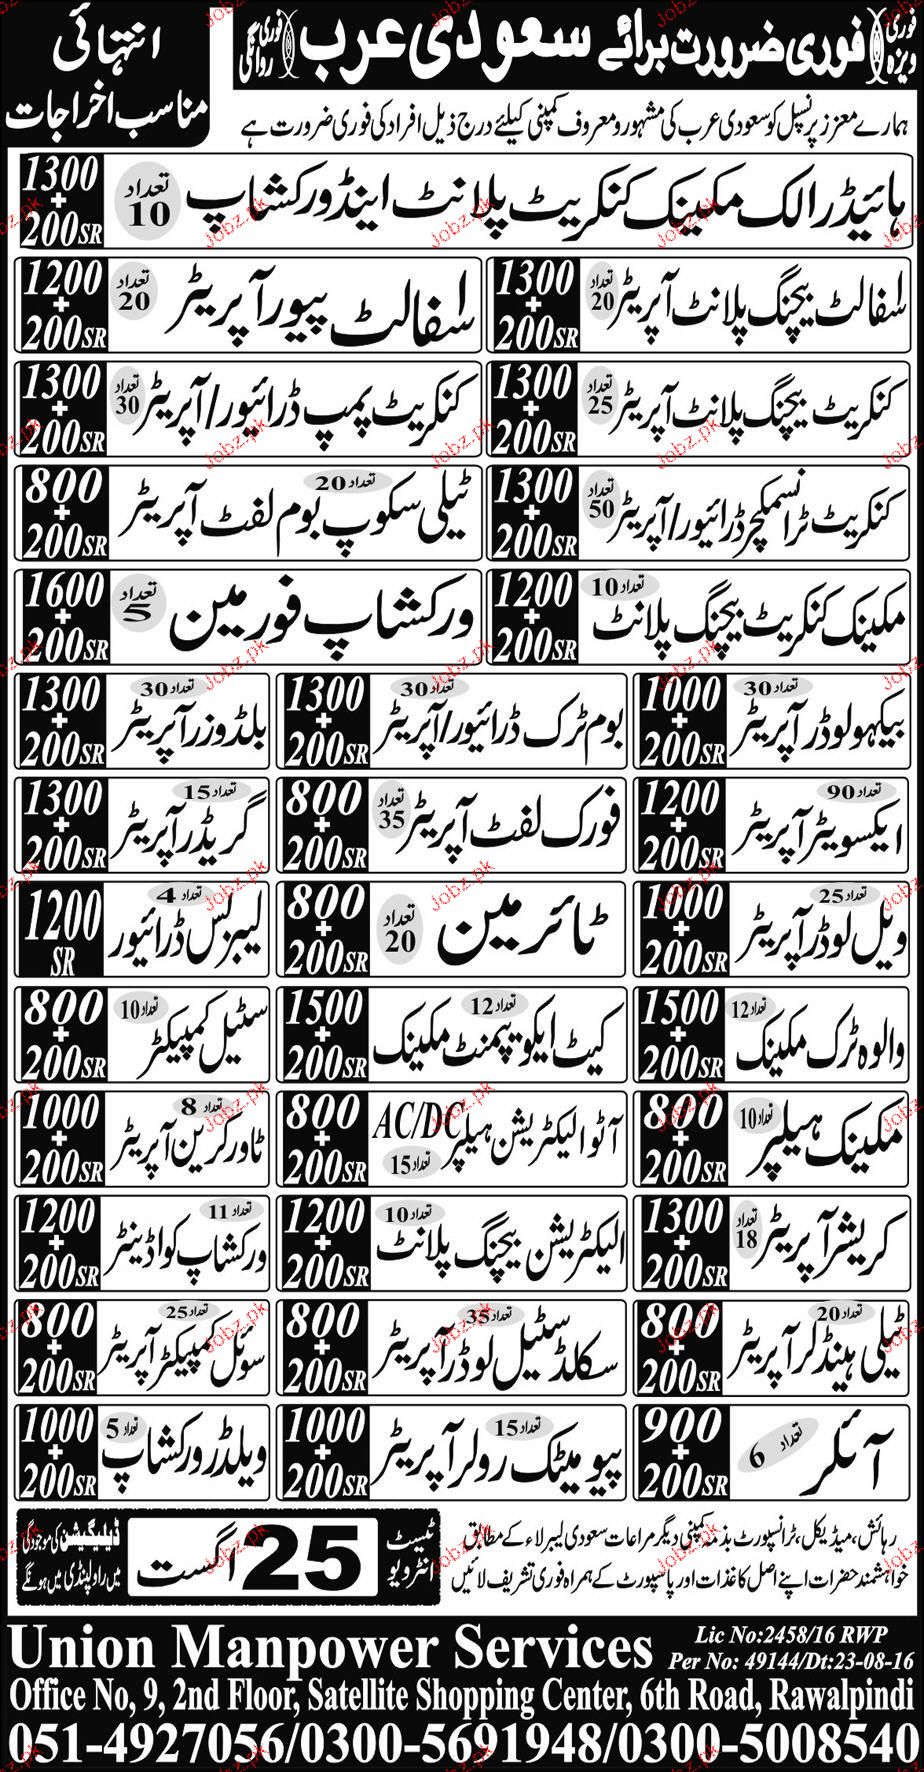 فوری ویزہ
فوری ضرورت برائے سعودی عرب
فوری روانگی
انتہائی
مناسب اخراجات
ہمارے معزز پرنسپل کو سعودی عرب کی مشہور و معروف کمپنی کیلئے درج ذیل افراد کی فوری ضرورت ہے
ہائیڈرالک مکینک کنکریٹ پلانٹ اینڈ ورکشاپ تعداد 10 1300+200SR
اسفالٹ بیچنگ پلانٹ آپریٹر تعداد 20 1300+200SR
اسفالٹ پیور آپریٹر تعداد 20 1200+200SR
کنکریٹ بیچنگ پلانٹ آپریٹر تعداد 25 1300+200SR
کنکریٹ پمپ ڈرائیور/آپریٹر تعداد 30 1300+200SR
کنکریٹ ٹرانسمکچر ڈرائیور/آپریٹر تعداد 50 1300+200SR
ٹیلی سکوپ بوم لفٹ آپریٹر تعداد 20 800+200SR
مکینک کنکریٹ بیچنگ پلانٹ تعداد 10 1200+200SR
ورکشاپ فورمین تعداد 5 1600+200SR
بیکہو لوڈر آپریٹر تعداد 30 1000+200SR
بوم ٹرک ڈرائیور/آپریٹر تعداد 30 1300+200SR
بلڈوزر آپریٹر تعداد 30 1300+200SR
ایکسویٹر آپریٹر تعداد 90 1200+200SR
فورک لفٹ آپریٹر تعداد 35 800+200SR
گریڈر آپریٹر تعداد 15 1300+200SR
ویل لوڈر آپریٹر تعداد 25 1000+200SR
ٹائر مین تعداد 20 800+200SR
لیبر بس ڈرائیور تعداد 4 1200 SR
والوہ ٹرک مکینک تعداد 12 1500+200SR
کیٹ ایکویپمنٹ مکینک تعداد 12 1500+200SR
سٹیل کمپیکٹر تعداد 10 800+200SR
مکینک ہیلپر تعداد 10 800+200SR
آٹو الیکٹریشن ہیلپر AC/DC تعداد 15 800+200SR
ٹاور کرین آپریٹر تعداد 8 1000+200SR
کریشر آپریٹر تعداد 18 1300+200SR
الیکٹریشن بیچنگ پلانٹ تعداد 10 1200+200SR
ورکشاپ کواڈینٹر تعداد 11 1200+200SR
ٹیلی ہینڈلر آپریٹر تعداد 20 800+200SR
سکلڈ سٹیل لوڈر آپریٹر تعداد 35 800+200SR
سوئل کمپیکٹر آپریٹر تعداد 25 800+200SR
آئلر تعداد 6 900+200SR
پیومیٹک رولر آپریٹر تعداد 15 1000+200SR
ویلڈر ورکشاپ تعداد 5 1000+200SR
رہائش، میڈیکل، ٹرانسپورٹ بذمہ کمپنی دیگر مراعات سعودی لیبر لاء کے مطابق
خواہشمند حضرات اپنے اصل کاغذات اور پاسپورٹ کے ہمراہ فوری تشریف لائیں
ٹیسٹ انٹرویو
25 اگست
ڈیلیگیشن کی موجودگی
میں راولپنڈی میں ہونگے
Union Manpower Services
Lic No:2458/16 RWP
Per No: 49144/Dt:23-08-16
Office No, 9, 2nd Floor, Satellite Shopping Center, 6th Road, Rawalpindi
051-4927056/0300-5691948/0300-5008540